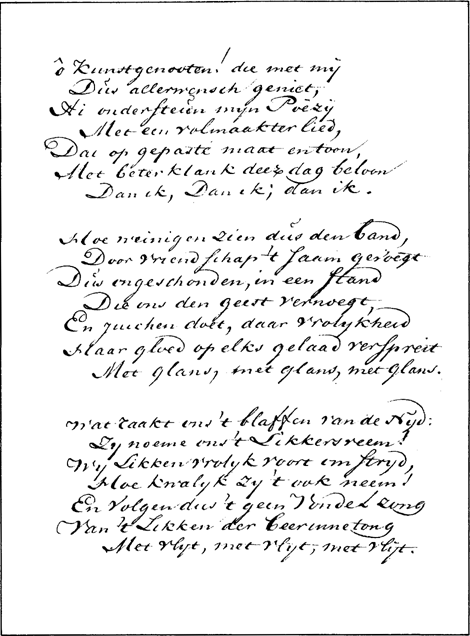 ô Kunstgenooten! die met mij
Dus allerwensch geniet,
Ai ondersteun mijn Poëzÿ
Met een volmaakter lied,
Dat op gepaste maat en toon,
Met beter klank deez' dag beloon
Dan ik, Dan ik; dan ik.
Hoe weinigen zien dus den band,
Door vriendschap 't saam gevoegt
Dus ongeschonden, in een stand
Die ons den geest vernoegt,
En juichen doet, daar vrolykheid
Haar gloed op elks gelaad verspreit
Met glans, met glans, met glans.
Wat raakt ons 't blaffen van de Nyd:
Zy noeme ons 't Likkersveem!
Wy Likken vrolyk voort om stryd,
Hoe kwalyk zy 't ook neem!
En volgen dus 't geen Vondel zong
Van 't Likken der beerinnetong
Met vlyt, met vlyt, met vlyt.